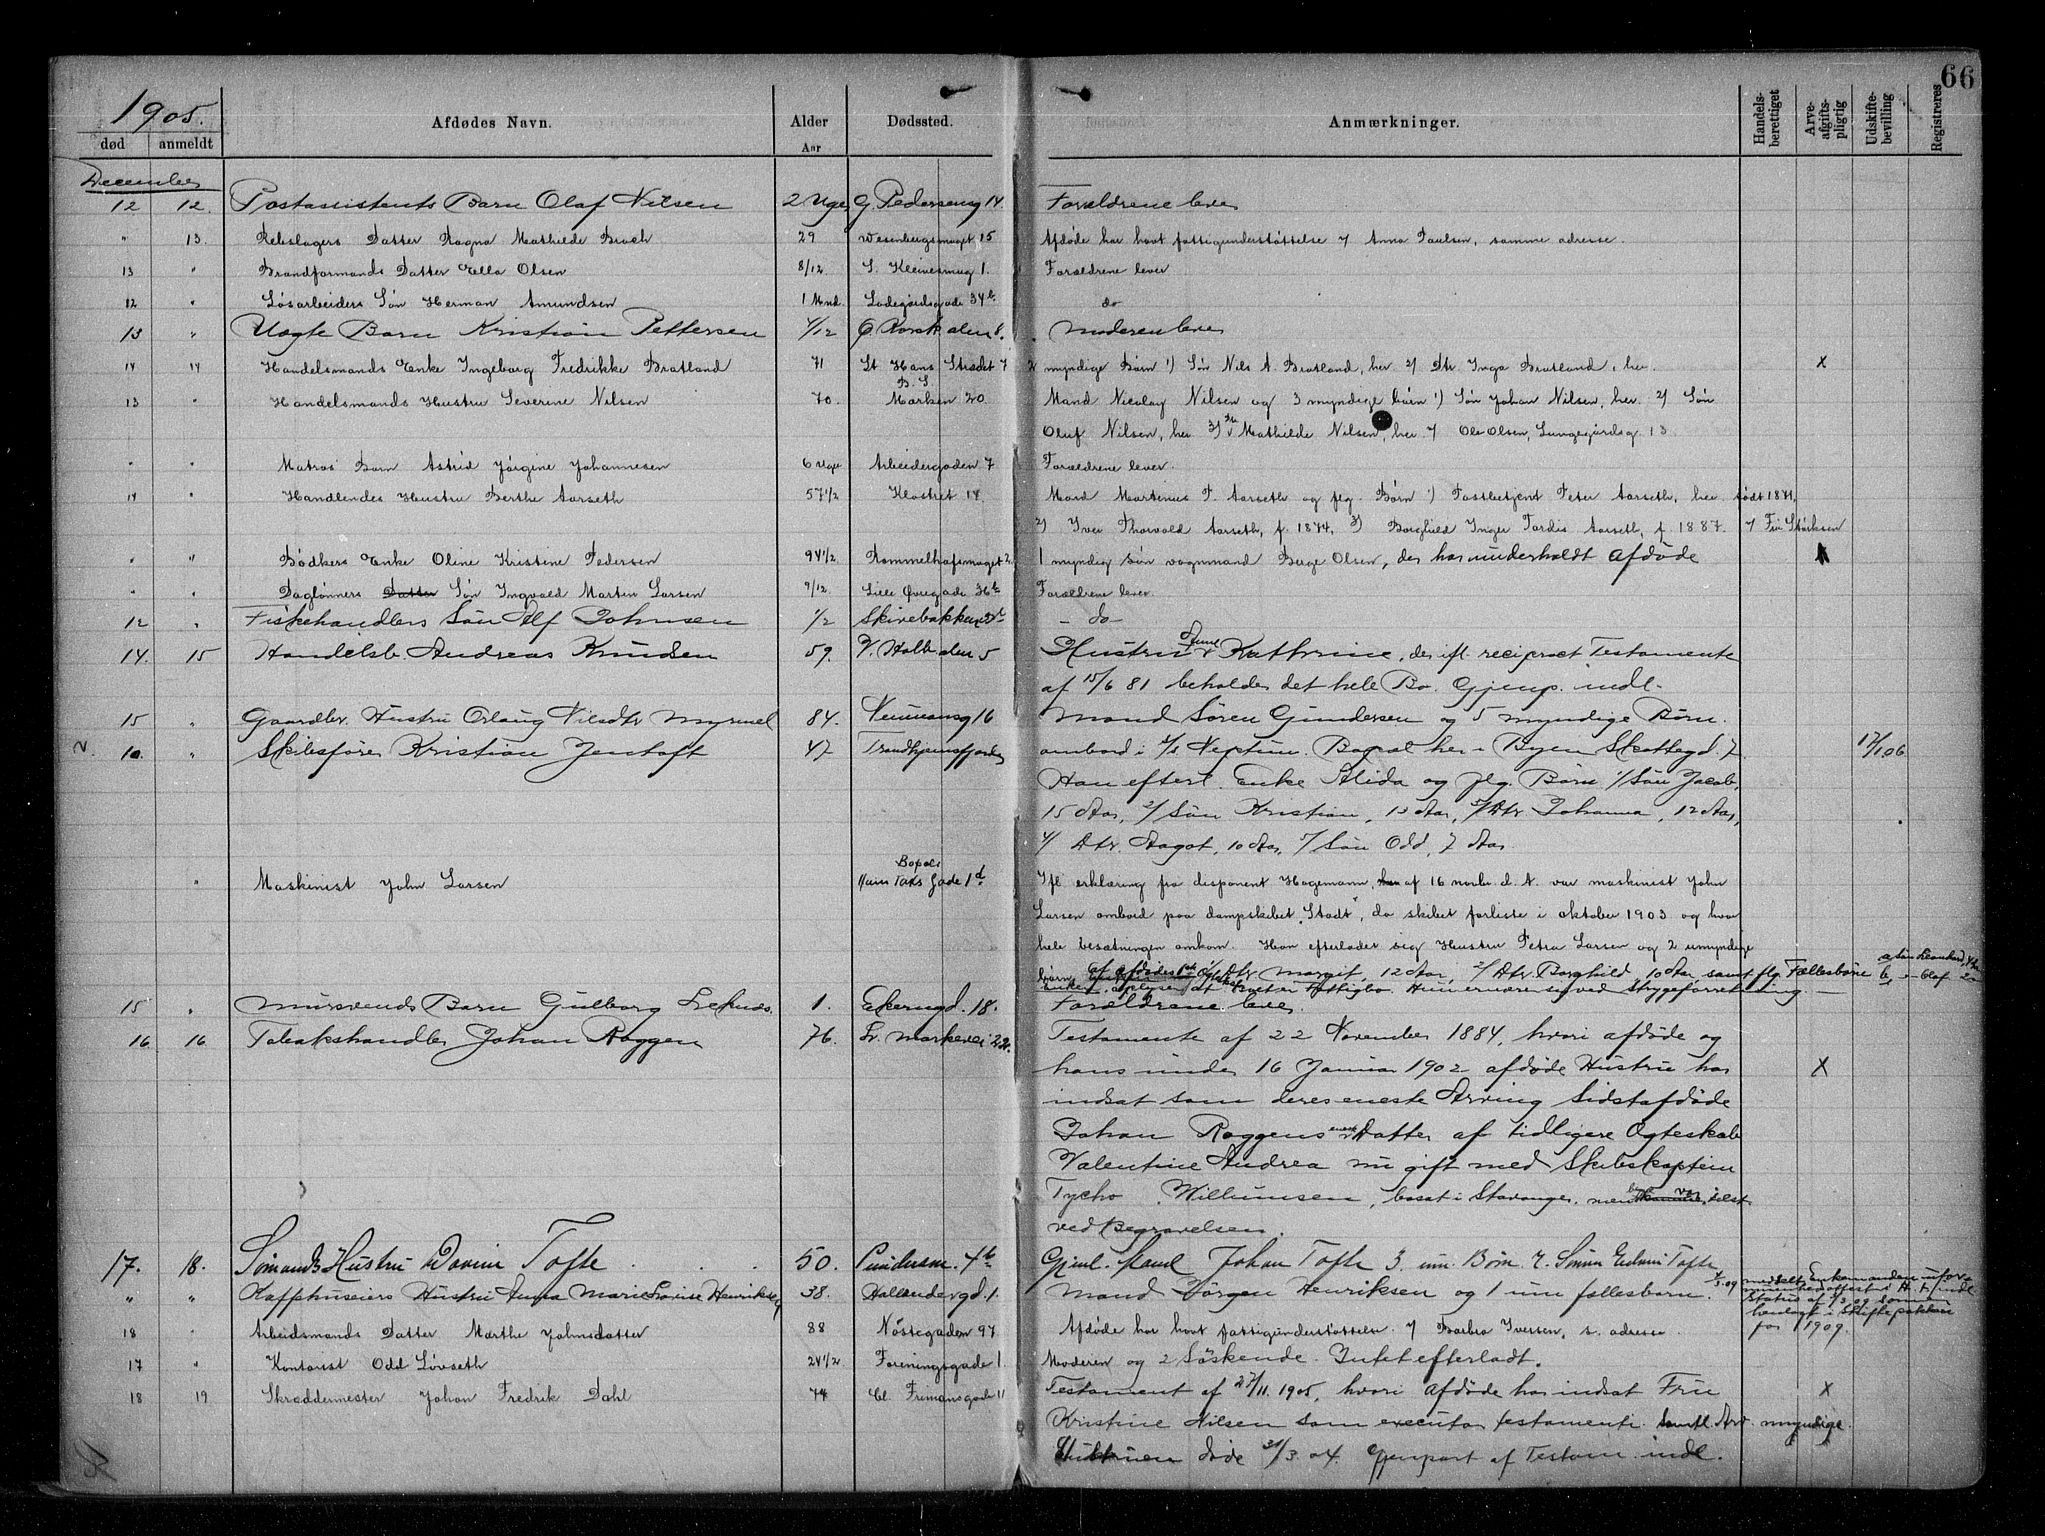 66
1905.
død anmeldt Afdødes Navn. Alder Aar Dødssted. Anmærkninger. Handels-berettiget Arve-afgifts-pligtig Udskifte-bevilling Registreres
December
12 12. Postassistents Barn Olaf Nilsen 2 Uger G. Pedersensg 14. Forældrene lever
" 13. Rebslagers Datter Ragna Mathilde Brach 29 Wesenbergsmuget 15 Afdøde har havt fattigunderstøttelse / Anna Paulsen, samme adresse.
13 " Brandformands Datter Ella Olsen 8/12 S. Kleivesmug 1. Forældrene lever
12 " Løsarbeiders Søn Herman Amundsen 1 Mnd. Ladegårdsgade 34b do
13 " Uægte Barn Kristian Pettersen 4/12 Ø. Korsk alm 8. Moderen lever
14 14 Handelsmands Enke Ingeborg Fredrikke Bratland 71 St Hans Strædet 7 2 myndige Børn 1) Søn Nils A. Bratland, her 2) Dtr Inga Bratland, her. X
13 " Handelsmands Hustru Severine Nilsen 70. B. S. Marken 20. Mand Nicolay Nilsen og 3 myndige børn 1) Søn Johan Nilsen, her 2) Søn
Oluf Nilsen, her 3) Mathilde Nilsen, her / Ole Olsen, Lungegårdsg 13
" " Matros Barn Astrid Jørgine Johannesen 6 uger Arbeidergaden 7 Forældrene lever.
14 " Handlendes Hustru Berthe Aarseth 57 1/2 Klostret 14 Mand Martinus P. Aarseth og flg. Børn 1) Postbetjent Peter Aarseth, her født 1871,
2) Iver Thorvald Aarseth, f. 1874, 3) Borghild Inger Tordis Aarseth, f. 1887. / Fru Størksen
" " Bødkers Enke Oline Kristine Pedersen 94 1/2 Rommelhafsmuget 2. 1 myndig søn vognmand Berge Olsen, der har underholdt afdøde X
" " Dagløners Datter Søn Ingvald Martin Larsen 9/12 Lille Øvregade 36b Forældrene lever.
12 " Fiskehandlers Søn Alf Johnsen 1/2 Skivebakken - do -
14. 15 Handelsb. Andreas Knudsen 59. V. Holb alm 5 Hustru Anne Kathrine, der ifl. reciproct Testamente
af 15/6 81 beholder det hele Bo. Gjenp. indl.
15 " Gaardbr. Hustru Orlaug Nilsdtr Myrmel 84. Neumansg 16 Mand Søren Gundersen og 5 myndige Børn.
10. " Skibsfører Kristian Jentoft 47 Trondhjemsfjorden ombord i S/S Neptun. Bopæl her i Byen Skottegd. 7 17/1.06
Han efterl. Enke Alida og flg. Børn 1/ Søn Jacob,
15 Aar, 2/ Søn Kristian, 13 Aar, 3/ Dtr Johanna, 12 Aar,
4/ Dtr. Aagot, 10 Aar, 5/ Søn Odd, 7 Aar
" Maskinist John Larsen Bopæl: Claus Taks Gade 1d Ifl erklæring fra disponent Hagemann, af 16 novbr. d. A. var maskinist John
Larsen ombord paa dampskibet "Stadt", da skibet forliste i oktober 1903 og hvor
hele besætningen omkom. Han efterlader sig Hustru Petra Larsen og 2 umyndige
børn af afdødes 1ste Ægteskab 1/ Dtr. Margit, 12 Aar, 2/ Dtr Borghild, 10 Aar samt flg. Fællesbørn
Enken oplyser at Boet er Fattigbo. Hun ernærer sig ved Strygeforretning.
15 " Mursvends Barn Gulborg Leknes. 1. Ekerengd. 18. Forældrene lever.
16. 16 Tobakshandler Johan Roggen 76. Lr. Markevei 22. Testamente af 22 November 1884, hvori afdøde og
hans under 16 Januar 1902 afdøde Hustru har X
indsat som deres eneste Arving sidstafdøde
Johan Roggens eneste Datter af tidligere Ægteskab
Valentine Andrea nu gift med Skibskaptein
Tycho Willumsen, bosat i Stavanger, men
ved Begravelsen.
17. 18. Sømands Hustru Davine Tofte 50. Pindersm. 4b Gjenl. Mand Johan Tofte 3 um. Børn. / Sønnen Edvin Tofte
" " Kaffehuseiers Hustru Anna Marie Lovise Henriksen 38. Hollendergd. 1. Mand Jørgen Henriksen og 1 um fællesbarn.
18 " Arbeidsmands Datter Marthe Johnsdatter 88 Nøstegaden 97 Afdøde har havt fattigunderstøttelse. / Barbra Iversen, s. adresse. for 1909.
17 " Kontorist Odd Løvseth 24 1/2 Foreningsgade 1. Moderen og 2 Søskende. Intet efterladt.
18 19 Skræddermester Johan Fredrik Dahl 74 Cl. Frimansgade 11 Testament af 27/11. 1905, hvori afdøde har indsat Fru X
Kristine Nilsen som executor testamenti. Samtl. Arv. myndige.
Hustruen døde 31/3 04. Gjenpart af Testam. indl.